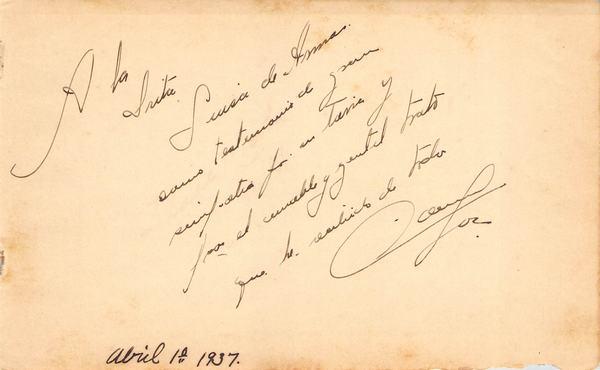 A la
Srita. Luisa de Armas.
como testimonio de gran
simpatia por su tierra y
por el amable y gentil trato
que he recibido de todos
Abril 1º 1937.